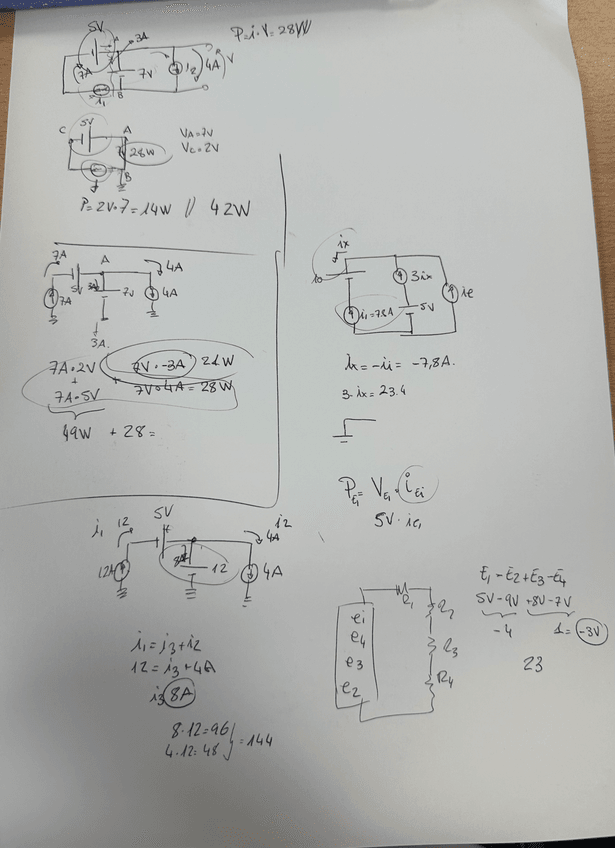 5V
3A
P=i·V=28W
7A
7V
i2
4A
V
i1
B
C
5V
A
28W
VA=7V
VC=2V
B
P=2V·7=14W // 42W
7A
A
4A
7A
5V
3A
7V
4A
3A.
7A·2V
7V·-3A
21W
+
+
7A·5V
7V·4A=28W
49W + 28=
ix
10
3ix
ie
i1=7,8A
5V
ix = -i1 = -7,8A.
3·ix=23.4
PE1 = VE1 · iE1
5V·ie1
5V
i1
12
i2
4A
12A
8A
12
4A
i1=i3+i2
12=i3+4A
i3 8A
8·12=96
4·12=48
=144
R1
R2
R3
R4
e1
e4
e3
e2
E1-E2+E3-E4
5V-9V+8V-7V
-4
1=-3V
23